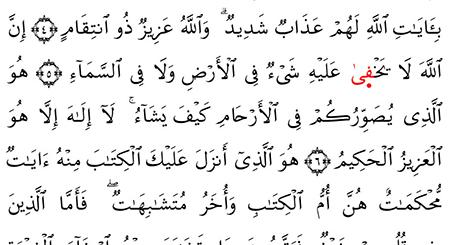 بِـَٔايَـٰتِ ٱللَّهِ لَهُمْ عَذَابٌ شَدِيدٌ ۗ وَٱللَّهُ عَزِيزٌ ذُو ٱنتِقَامٍ ﴿٤﴾ إِنَّ
ٱللَّهَ لَا يَخْفَىٰ عَلَيْهِ شَىْءٌ فِى ٱلْأَرْضِ وَلَا فِى ٱلسَّمَآءِ ﴿٥﴾ هُوَ
ٱلَّذِى يُصَوِّرُكُمْ فِى ٱلْأَرْحَامِ كَيْفَ يَشَآءُ ۚ لَآ إِلَـٰهَ إِلَّا هُوَ
ٱلْعَزِيزُ ٱلْحَكِيمُ ﴿٦﴾ هُوَ ٱلَّذِىٓ أَنزَلَ عَلَيْكَ ٱلْكِتَـٰبَ مِنْهُ ءَايَـٰتٌ
مُّحْكَمَـٰتٌ هُنَّ أُمُّ ٱلْكِتَـٰبِ وَأُخَرُ مُتَشَـٰبِهَـٰتٌ ۖ فَأَمَّا ٱلَّذِينَ